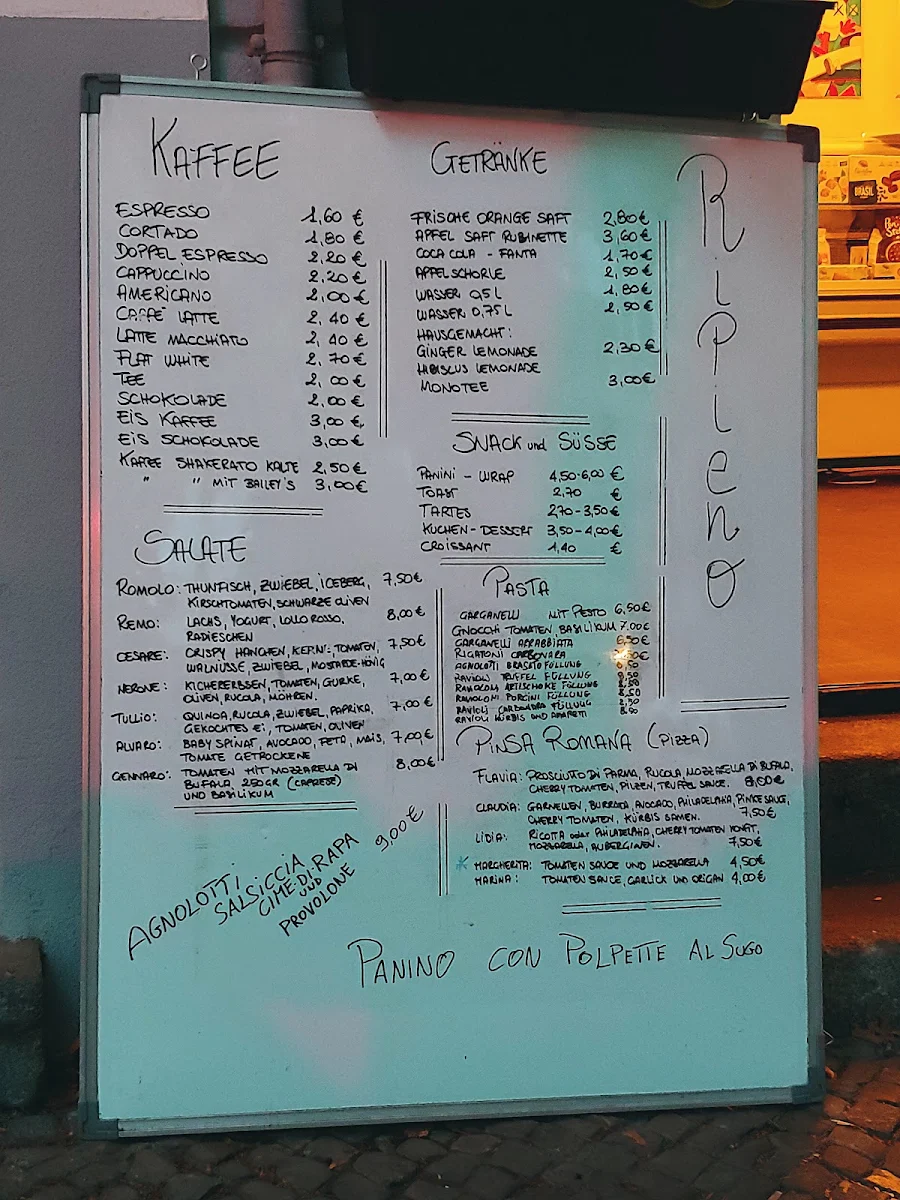 KAFFEE
ESPRESSO 1,60 €
CORTADO 1,80 €
DOPPEL ESPRESSO 2,20 €
CAPPUCCINO 2,20 €
AMERICANO 2,00 €
CAFFE LATTE 2,40 €
LATTE MACCHIATO 2,40 €
FLAT WHITE 2,70 €
TEE 2,00 €
SCHOKOLADE 2,00 €
EIS KAFFEE 3,00 €
EIS SCHOKOLADE 3,00 €
KAFFEE SHAKERATO KALTE 2,50 €
" " MIT BAILEY'S 3,00 €
SALATE
ROMOLO: THUNFISCH, ZWIEBEL, ICEBERG, 7,50€
KIRSCHTOMATEN, SCHWARZE OLIVEN
REMO: LACHS, YOGURT, LOLLO ROSSO, 8,00€
RADIESCHEN
CESARE: CRISPY HÄNCHEN, KERNE, TOMATEN, 7,50€
WALNÜSSE, ZWIEBEL, MOSTARDE-HÖNIG
NERONE: KICHERERBSEN, TOMATEN, GURKE, 7,00 €
OLIVEN, RUCOLA, MÖHREN.
TULLIO: QUINOA, RUCOLA, ZWIEBEL, PAPRIKA, 7,00 €
GEKOCHTES EI, TOMATEN, OLIVEN
ALVARO: BABY SPINAT, AVOCADO, FETA, MAIS, 7,00€
TOMATE GETROCKENE
GENNARO: TOMATEN MIT MOZZARELLA DI 8,00€
BUFALA, 250GR (CAPRESE)
UND BASILIKUM
AGNOLOTTI 9,00€
SALSICCIA
CIME-DI-RAPA
UND
PROVOLONE
GETRÄNKE
FRISCHE ORANGE SAFT 2,80€
APFEL SAFT RUBINETTE 3,60€
COCA COLA - FANTA 1,70€
APFELSCHORLE 2,50€
WASSER 0,5 L 1,80€
WASSER 0,75 L 2,50€
HAUSGEMACHT:
GINGER LEMONADE 2,30€
HIBISCUS LEMONADE
MONOTEE 3,00€
SNACK und SÜSSE
PANINI - WRAP 4,50-6,00 €
TOAST 2,70 €
TARTES 2,70-3,50€
KUCHEN-DESSERT 3,50-4,00€
CROISSANT 1,40 €
PASTA
GARGANELLI MIT PESTO 6,50€
GNOCCHI TOMATEN, BASILIKUM 7.00€
GARGANELLI ARRABBIATA 6,50€
RIGATONI CARBONARA
AGNOLOTTI BRASATO FÜLLUNG
RAVIOLI TRUFFEL FÜLLUNG
ARTISCHOKE FÜLLUNG
PORCINI FÜLLUNG 8.50
RAVIOLI FÜLLUNG
RAVIOLI KÜRBIS UND AMARETTI 8.50
PINSA ROMANA (PIZZA)
FLAVIA: PROSCIUTTO DI PARMA, RUCOLA, MOZZARELLA DI BUFALA,
CHERRY TOMATEN, PILZEN, TRUFFEL SAUCE.
CLAUDIA: GARNELLEN, BURRATA, AVOCADO, PHILADELPHIA, PINKE SAUCE,
CHERRY TOMATEN, KÜRBIS SAMEN. 7,50€
LIDIA: RICOTTA oder PHILADELPHIA, CHERRY TOMATEN
MOZZARELLA, AUBERGINEN. 7,50€
* MARGHERITA: TOMATEN SAUCE UND MOZZARELLA 4,50€
MARINA: TOMATEN SAUCE, GARLICK UND ORIGAN 4,00€
PANINO CON POLPETTE AL SUGO
RiPieno
BRASIL